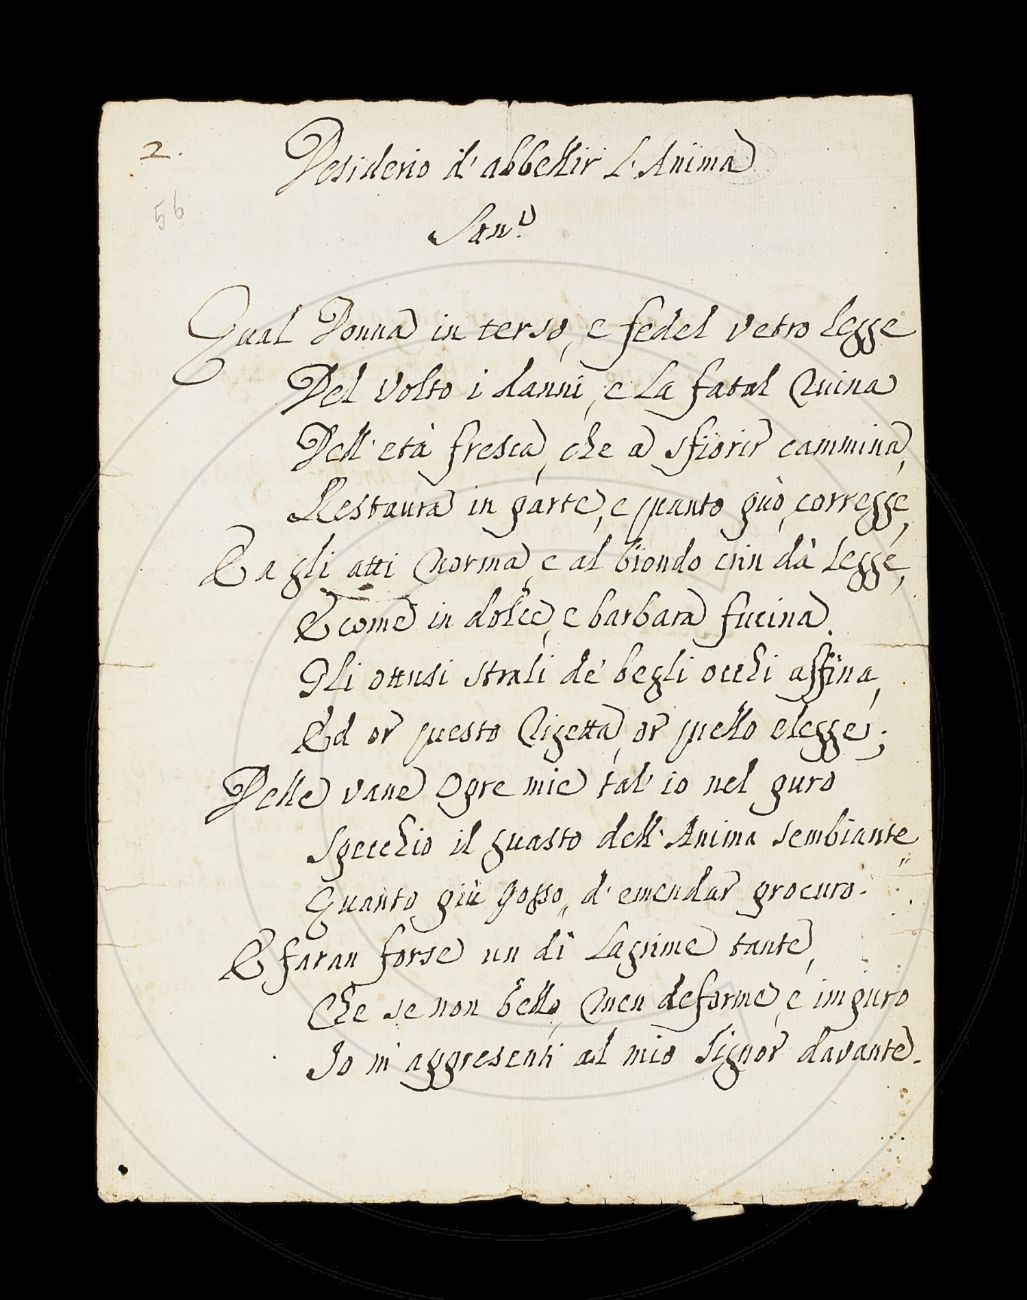 2.
56
Desiderio d'abbellir L'Anima
Qual Donna in terso, e fedel vetro legge
Del Volto i danni, e La fatal Ruina
Dell'età fresca, che a sfiorir cammina,
Restaura in parte, e quanto può, corregge,
E a gli atti Norma, e al biondo crin dà Legge,
E come in dolce, e barbara fucina.
Gli ottusi strali de' begli occhi affina,
Ed or questo Rigetta, or quello elegge;
Delle vane Opre mie tal' io nel puro
Specchio il guasto dell'Anima sembiante
Quanto più posso, d'emendar procuro.
E faran forse un dì Lagrime tante,
Che se non bello, Men deforme, e impuro
Io m'appresenti al mio Signor davante.